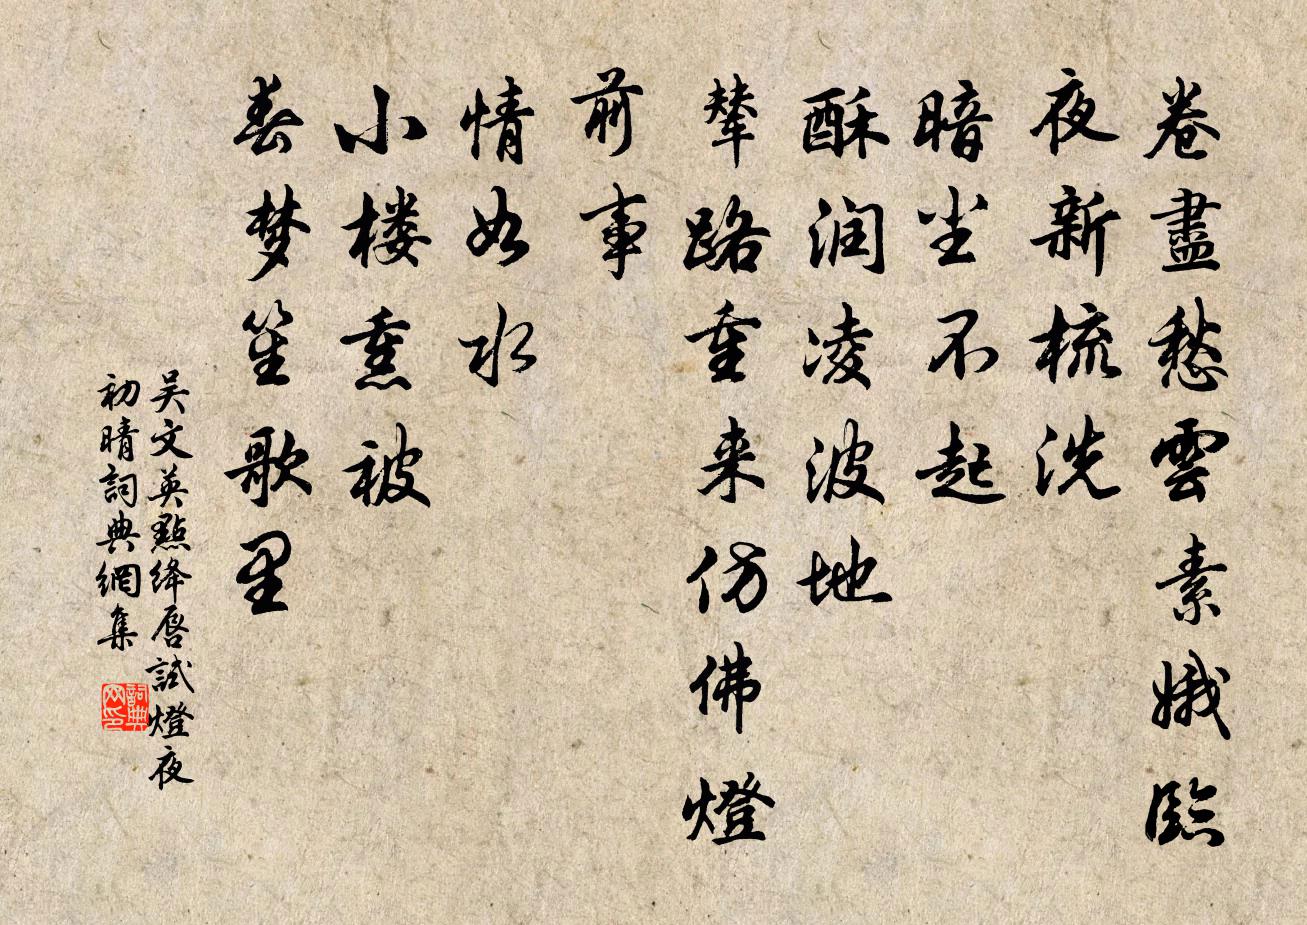 卷盡愁雲素娥臨
夜新梳洗
暗尘不起
酥润凌波地
辇路重来仿佛燈
前事
情如水
小楼熏被
春梦笙歌里
吴文英點绛唇試燈夜
初晴詞典網集
詞典
网印